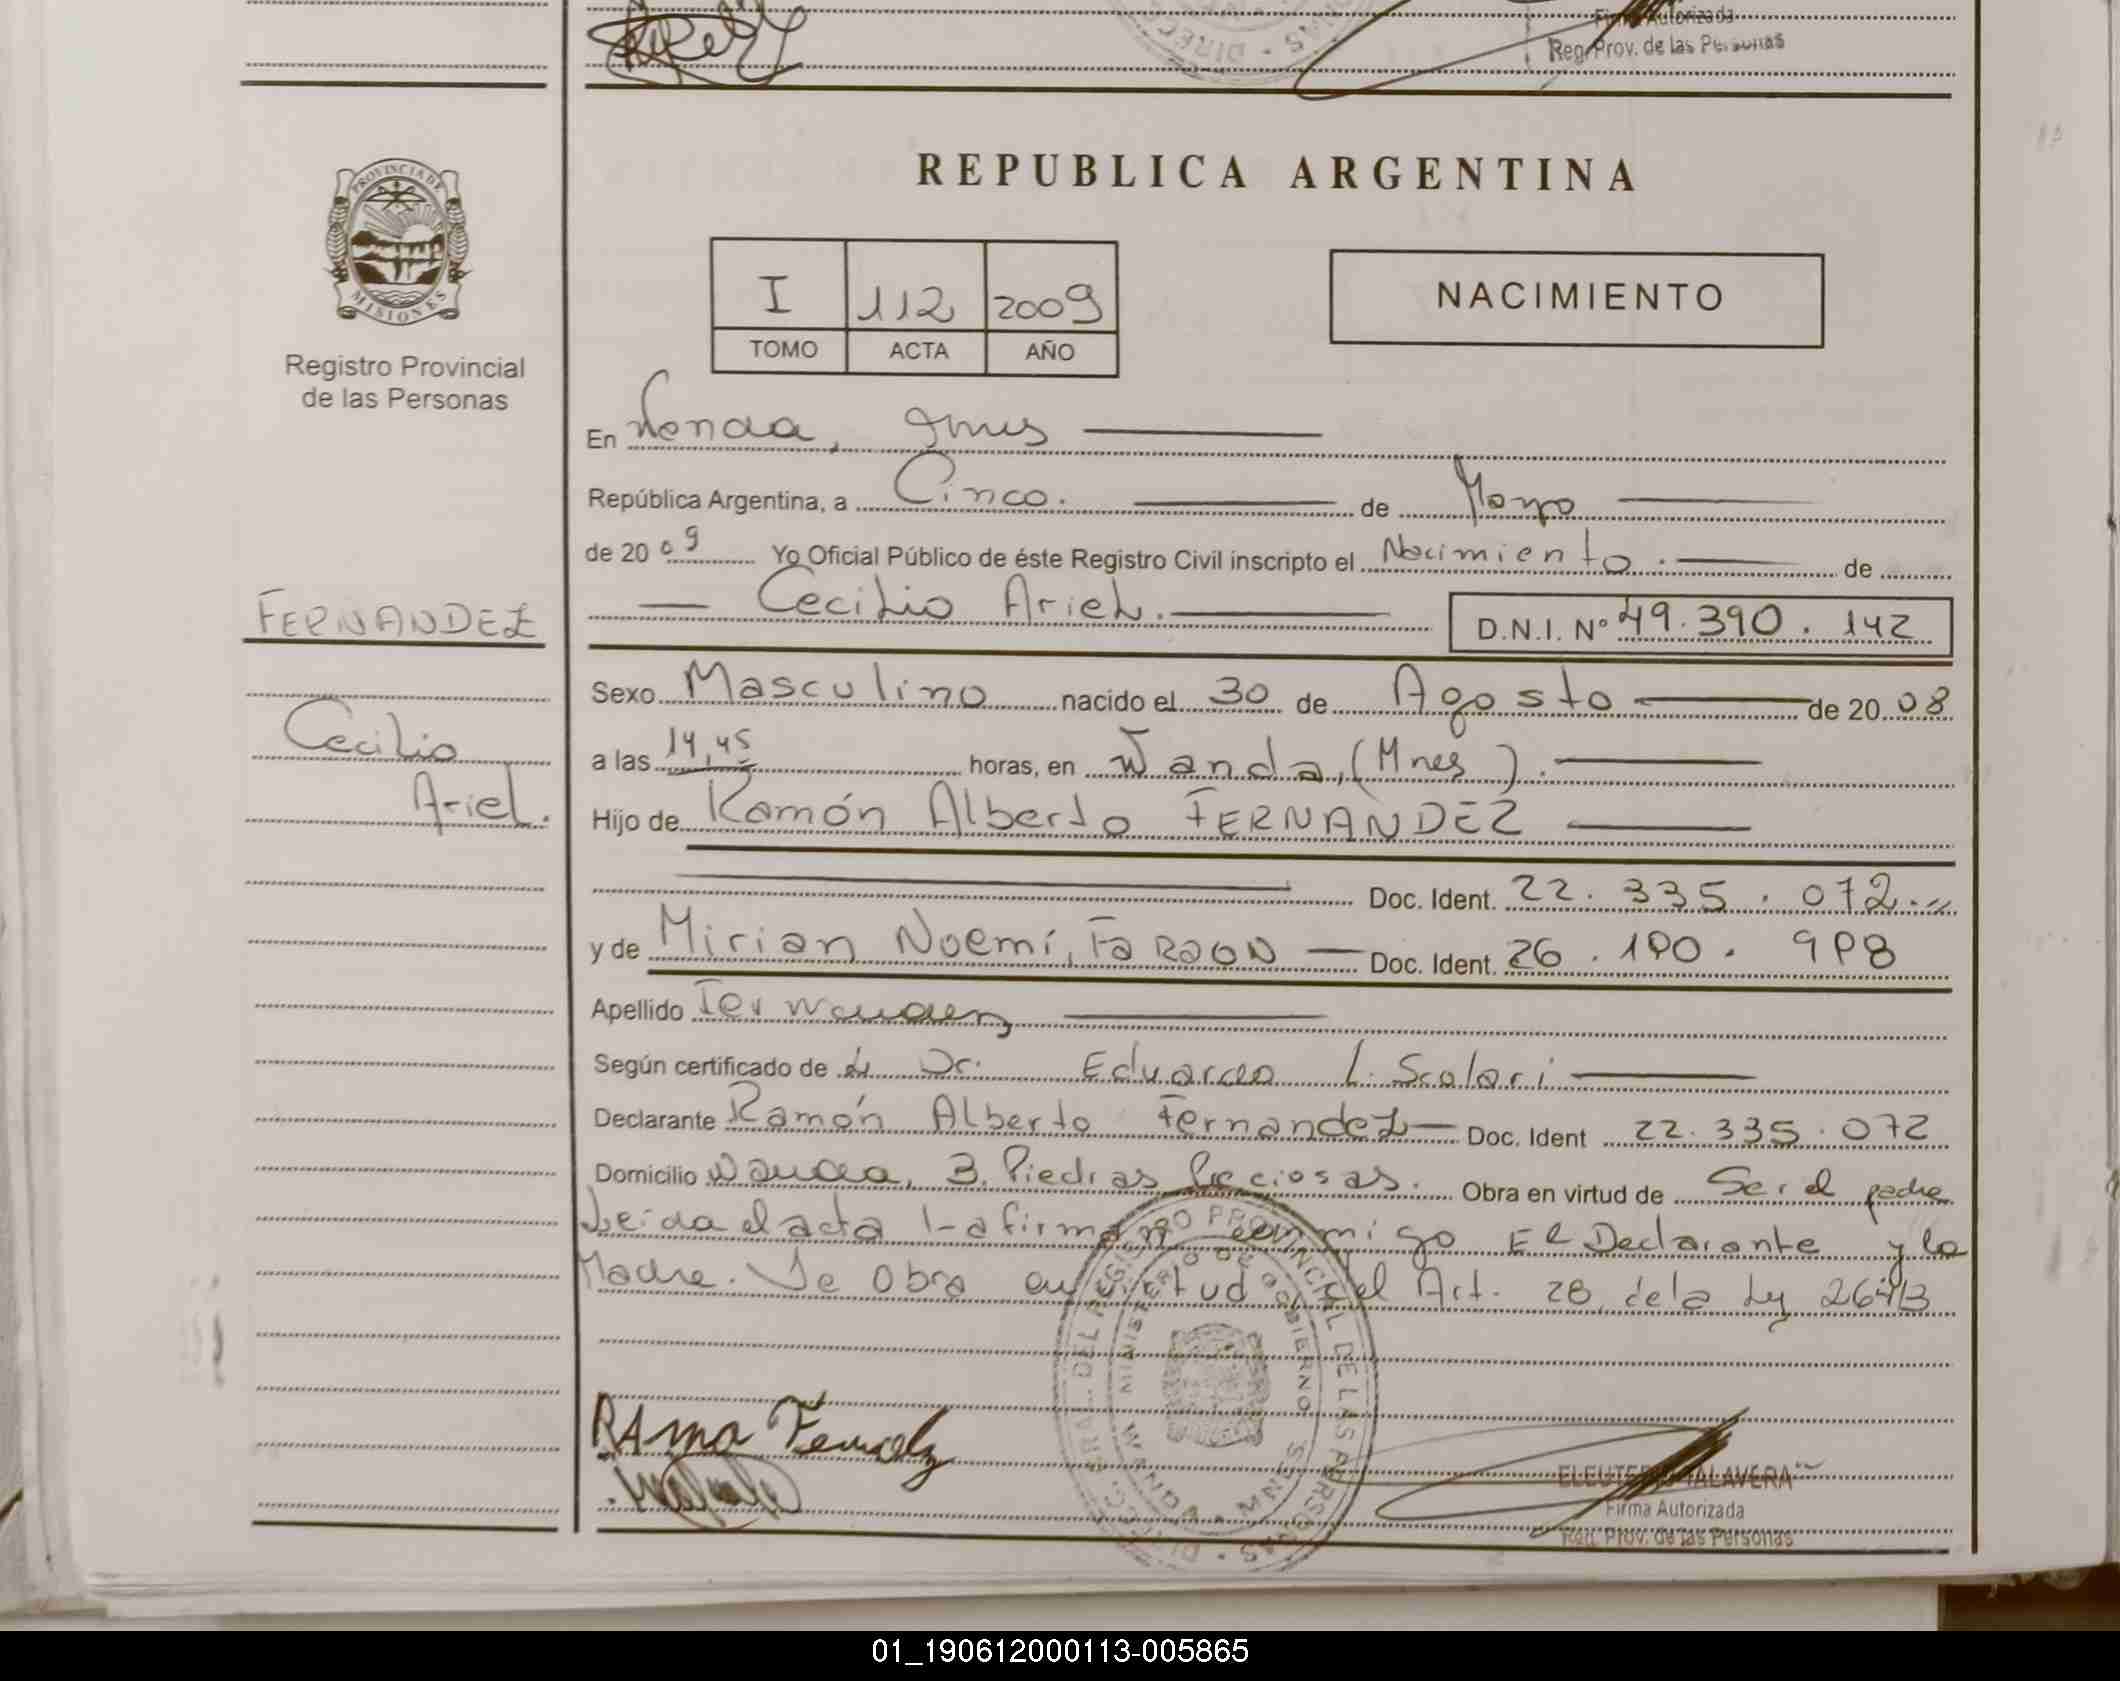 Firma Autorizada
Reg. Prov. de las Personas
PROVINCIA DE
MISIONES
Registro Provincial
de las Personas
REPUBLICA ARGENTINA
I 112 2009
TOMO ACTA AÑO
NACIMIENTO
En Wanda, Mnes
República Argentina, a Cinco. de Mayo
de 2009 Yo Oficial Público de éste Registro Civil inscripto el Nacimiento. de
Cecilio Ariel. D.N.I. Nº 49.390.142
FERNANDEZ
Cecilio
Ariel.
Sexo Masculino nacido el 30 de Agosto de 2008
a las 14,45 horas, en Wanda, (Mnes).
Hijo de Ramón Alberto FERNANDEZ
Doc. Ident. 22.335.072.
y de Mirian Noemí, Doc. Ident. 26.190.998
Apellido Fernandez
Según certificado de el Dr. Eduardo L. Scolari
Declarante Ramón Alberto Fernandez Doc. Ident 22.335.072
Domicilio Wanda, 3. Piedras Preciosas. Obra en virtud de Ser el padre
Leida el acta La firman conmigo El Declarante y la
Madre. Se Obra en virtud del Art. 28 de la Ley 26413
DIRECC. GRAL. DEL REGISTRO PROVINCIAL DE LAS PERSONAS
MINISTERIO DE GOBIERNO
WANDA - MNES
ELEUTERIO TALAVERA
Firma Autorizada
Reg. Prov. de las Personas
01_190612000113-005865